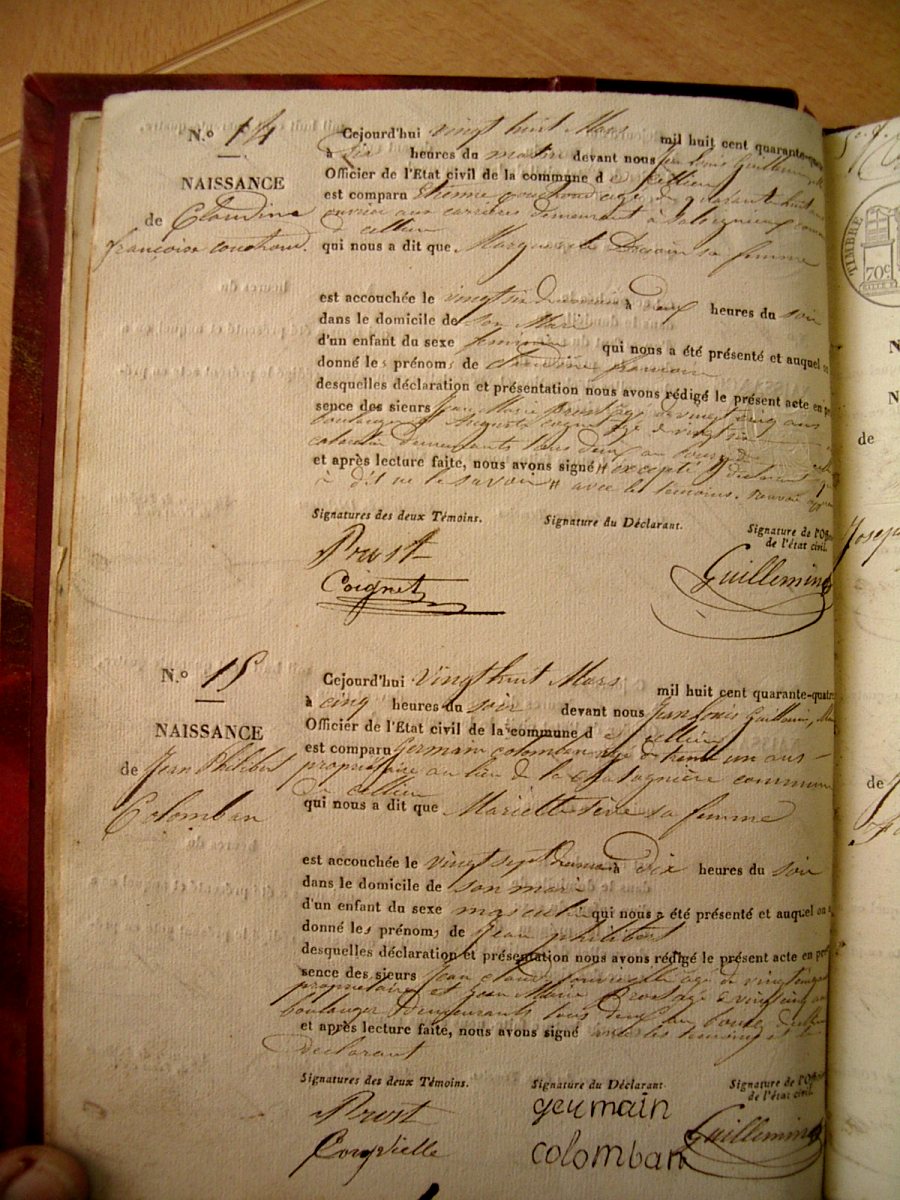 N.º 14
NAISSANCE
de Claudine
françoise couchoud.
Cejourd'hui vingt huit Mars mil huit cent quarante-qua
à Dix heures du matin devant nous Jean Louis Guillemin, M
Officier de l'Etat civil de la commune d e cellieu
est comparu Etienne couchoud agé de quarant huit ans
ouvrier aux carrières demeurant à Salcigneux
d cellieu
qui nous a dit que Marguerite sa femme
est accouchée le vingt six du mois à deux heures du soir
dans le domicile de son Mari
d'un enfant du sexe feminin qui nous a été présenté et auquel on
donné les prénoms de claudine francoise
desquelles déclaration et présentation nous avons rédigé le présent acte en pré
sence des sieurs Jean Marie Prost agé de vingt cinq ans
boulanger & Auguste coignet agé de vingt six
demeurants tous deux au bourg de
et après lecture faite, nous avons signé excepté le declarant
à dit ne le savoir avec les témoins.
Signatures des deux Témoins.
Signature du Déclarant.
Signature de l'Off
de l'état civil.
Prost
Coignet
Guillemin
N.º 15
NAISSANCE
de Jean Philibert
Colomban
Cejourd'hui vingt huit Mars mil huit cent quarante-quatre
à cinq heures du soir devant nous Jean Louis Guillemin, M
Officier de l'Etat civil de la commune d e cellieu
est comparu Germain colomban agé de trente un ans
propriétaire au lieu de la chatagnière commune
de cellieu
qui nous a dit que Mariette sa femme
est accouchée le vingt sept du mois à dix heures du soir
dans le domicile de son mari
d'un enfant du sexe masculin qui nous a été présenté et auquel on a
donné les prénoms de Jean philibert
desquelles déclaration et présentation nous avons rédigé le présent acte en pré
sence des sieurs Jean claude agé de vingt
propriétaire et Jean Marie Prost agé de vingt cinq ans
boulanger demeurants tous deux au bourg de cellieu
et après lecture faite, nous avons signé avec les temoins et le
Declarant
Signatures des deux Témoins.
Signature du Déclarant.
Signature de l'Off
de l'état civil.
Prost
germain
colomban
Guillemin
TIMBRE
70c
N
N
de
Joseph
de J